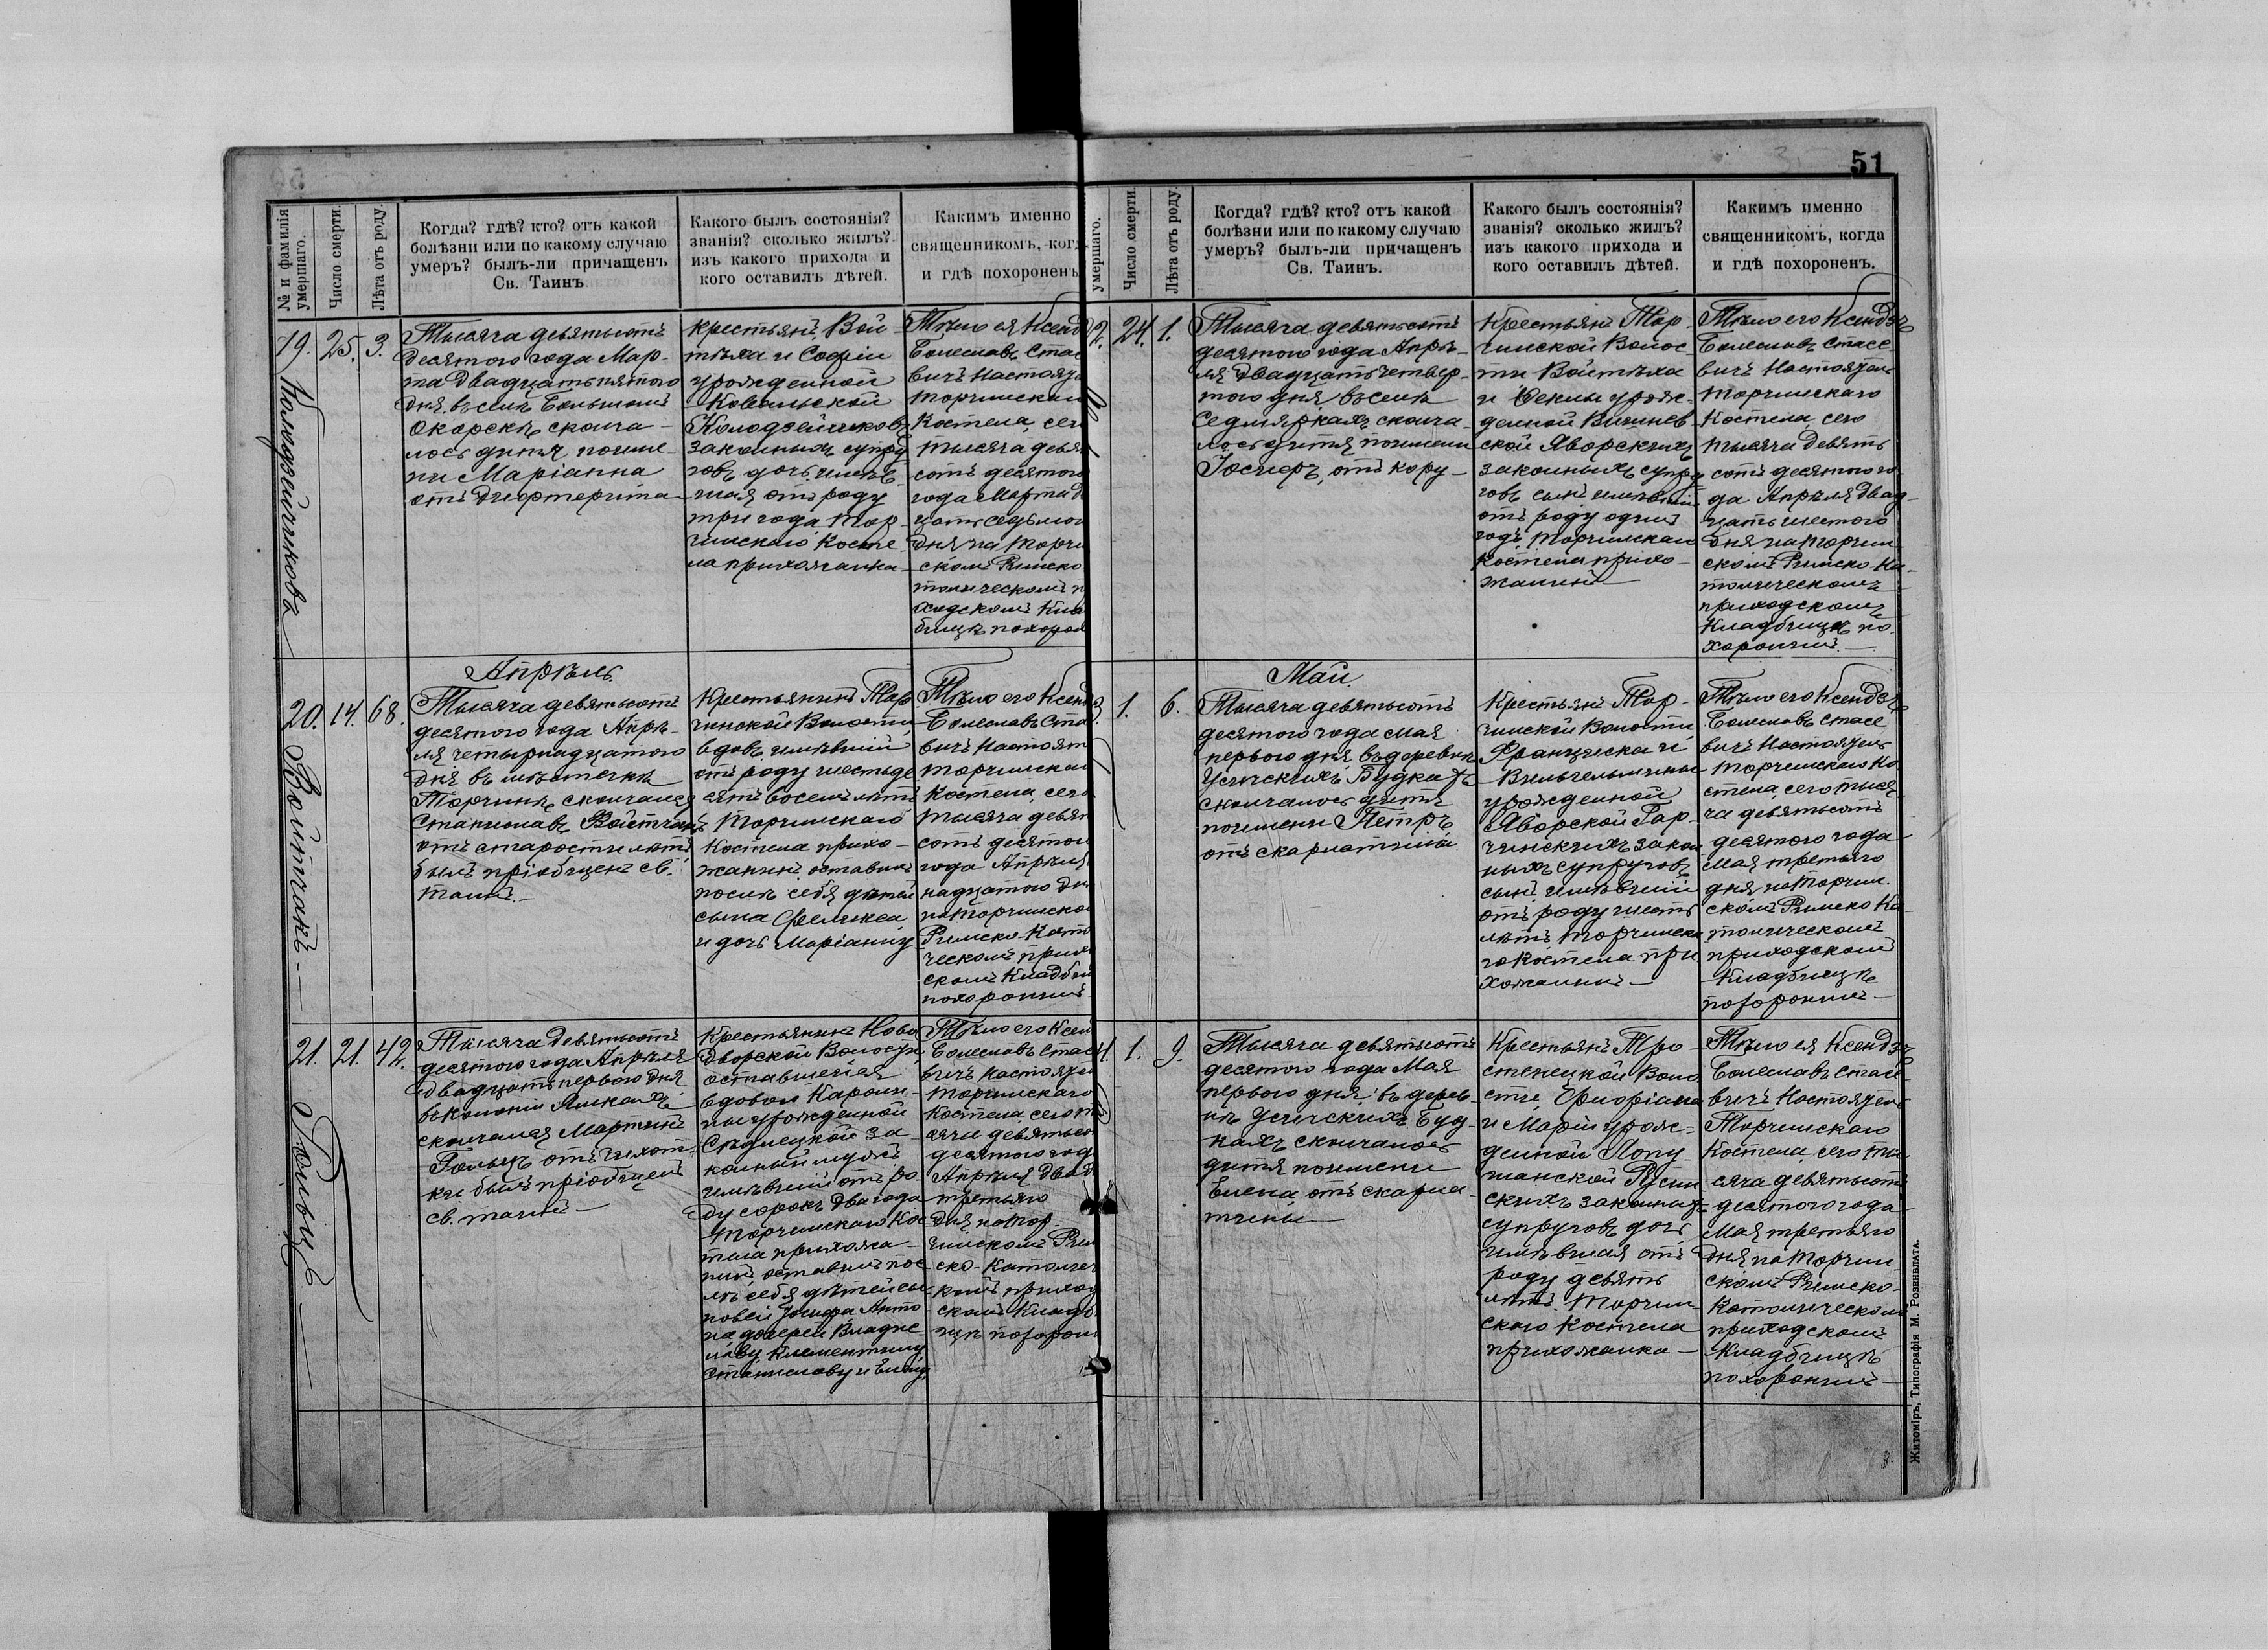 51
№ и фамилія
умершаго.
Число смерти.
Лѣта отъ роду.
Когда? гдѣ? кто? отъ какой
болѣзни или по какому случаю
умеръ? былъ-ли причащенъ
Св. Таинъ.
Какого былъ состоянія?
званія? сколько жилъ?
изъ какого прихода и
кого оставилъ дѣтей.
Какимъ именно
священникомъ, когд
и гдѣ похороненъ
19.
Колодзейчикова
25.
3.
Тысяча девятьсотъ
десятого года Мар-
та двадцать пятого
дня, въ селѣ Большой
сконча-
лось дитя по име-
ни Маріанна
отъ дифтерита
крестьянъ Вой-
тѣха и Софіи
урожденной
Ковальской
Колодзейчиковъ
законныхъ супру
говъ дочь, имѣв-
шая отъ роду
три года, Тор-
чинскаго Косте-
ла прихожанка
Тѣло ея Ксендз
Болеславъ Стас
вичъ Настояте
Торчинскаго
Костела, сего
тысяча девят
сотъ десятого
года Марта д
цать седьмог
дня на Торчи
скомъ Римско
толическомъ п
ходскомъ Клад
бищѣ похорон
Апрѣль.
20.
Войтчакъ
14.
68.
Тысяча девятьсотъ
десятого года Апрѣ-
ля четырнадцатого
дня въ мѣстечкѣ
Торчинѣ, скончался
Станиславъ Войтчакъ
отъ старости лѣтъ
былъ пріобщенъ св.
таинъ.
Крестьянинъ Тор
чинской Волости,
вдовъ, имѣвшій
отъ роду шестьде
сятъ восемь лѣтъ
Торчинскаго
Костела прихо-
жанинъ, оставилъ
послѣ себя дѣтей
сына Феликса
и дочь Маріанну
Тѣло его Ксендз
Болеславъ Ста
вичъ Настоят
Торчинскаго
Костела, сего
тысяча девят
сотъ десятого
года Апрѣля
надцатого дн
на Торчинско
Римско-Като
ческомъ прихо
скомъ Кладби
похоронилъ
21.
Гольцъ
21.
42.
Тысяча девятьсотъ
десятого года Апрѣля
двадцать первого дня
въ колоніи
скончался Мартинъ
Гольцъ отъ чихот-
ки былъ пріобщенъ
св. таинъ
Крестьянинъ Ново
дворской Волости
оставшейся
вдовою Кароли-
ны урожденной
за-
конный мужъ
имѣвшій отъ ро-
ду сорокъ два года
Торчинскаго Кос
тела прихожа-
нинъ, оставилъ пос
лѣ себя дѣтей сы-
новей Іосифа Анто
на дочерей Владис-
лаву, Клементину
Станиславу и Елену
Тѣло его Ксен
Болеславъ Стас
вичъ Настояте
Торчинскаго
Костела, сего т
сяча девятьсо
десятого год
Апрѣля двад
третьяго
дня, на Тор-
чинскомъ Рим
ско-Католич
комъ приход
скомъ Кладб
щѣ похорон
умершаго.
Число смерти.
Лѣта отъ роду.
Когда? гдѣ? кто? отъ какой
болѣзни или по какому случаю
умеръ? былъ-ли причащенъ
Св. Таинъ.
Какого былъ состоянія?
званія? сколько жилъ?
изъ какого прихода и
кого оставилъ дѣтей.
Какимъ именно
священникомъ, когда
и гдѣ похороненъ.
2.
24.
1.
Тысяча девятьсотъ
десятого года Апрѣ-
ля двадцать четвер-
того дня, въ селѣ
Седмяркахъ сконча-
лось дитя по имени
Іосифъ, отъ кору-
Крестьянъ Тор-
чинской Волос-
ти Войтѣха
и Феклы урож-
денной Вишнев
ской Яворскихъ
законныхъ супру
говъ сынъ имѣвшій
отъ роду одинъ
годъ, Торчинскаго
Костела прихо-
жанинъ
Тѣло его Ксендзъ
Болеславъ Стасе
вичъ Настоятель
Торчинскаго
Костела, сего
тысяча девять
сотъ десятого го
да Апрѣля двад-
цать шестого
дня на Торчин
скомъ Римско Ка-
толическомъ
приходскомъ
Кладбищѣ по-
хоронилъ.
Май.
3.
1.
6.
Тысяча девятьсотъ
десятого года Мая
первого дня, въ деревнѣ
Усичскихъ Будкахъ
скончалось дитя
по имени Петръ
отъ скарлатины
Крестьянъ Тор-
чинской Волости
Францишка и
Вильгельмины
урожденной
Яворской Гар-
чинскихъ закон
ныхъ супруговъ
сынъ, имѣвшій
отъ роду шесть
лѣтъ, Торчинска
го Костела при
хожанинъ
Тѣло его Ксендзъ
Болеславъ Стасе
вичъ Настоятель
Торчинскаго Ко
стела, сего тыся
ча девятьсотъ
десятого года
Мая третьяго
дня, на Торчин.
скомъ Римско Ка
толическомъ
приходскомъ
Кладбищѣ
похоронилъ
4.
1.
9.
Тысяча девятьсотъ
десятого года Мая
первого дня, въ дерев-
нѣ Усичскихъ Буд-
кахъ скончалось
дитя по имени
Елена, отъ скарла-
тины
Крестьянъ Тро-
стенецкой Воло
сти, Флоріана
и Маріи урож-
денной Лопу-
шанской Русин
скихъ законныхъ
супруговъ дочь
имѣвшая отъ
роду девять
лѣтъ. Торчин-
скаго Костела
прихожанка
Тѣло ея Ксендзъ
Болеславъ Стасе
вичъ Настоятель
Торчинскаго
Костела, сего ты
сяча девятьсотъ
десятого года
Мая третьяго
дня на Торчин
скомъ Римско-
Католическомъ
приходскомъ
Кладбищѣ
похоронилъ
Житоміръ, Типографія М. Розенблата.